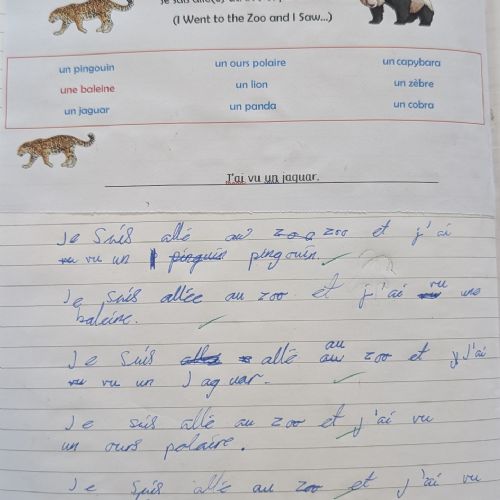 (I Went to the Zoo and I Saw...)
un pingouin un ours polaire un capybara
une baleine un lion un zèbre
un jaguar un panda un cobra
J'ai vu un jaguar.
Je suis allé au zoo et j'ai
vu un pingouin.
Je suis allée au zoo et j'ai vu une
baleine.
Je suis allé au zoo et J'ai
vu un Jaguar.
Je suis allé au zoo et j'ai vu
un ours polaire.
Je suis allé au zoo et j'ai vu